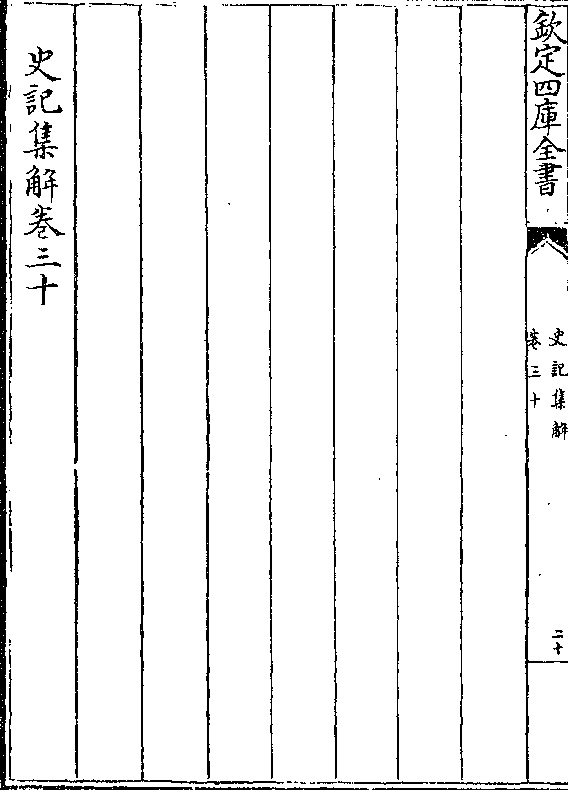 欽定四庫全書
史記集解
卷三十
二十
史記集解卷三十